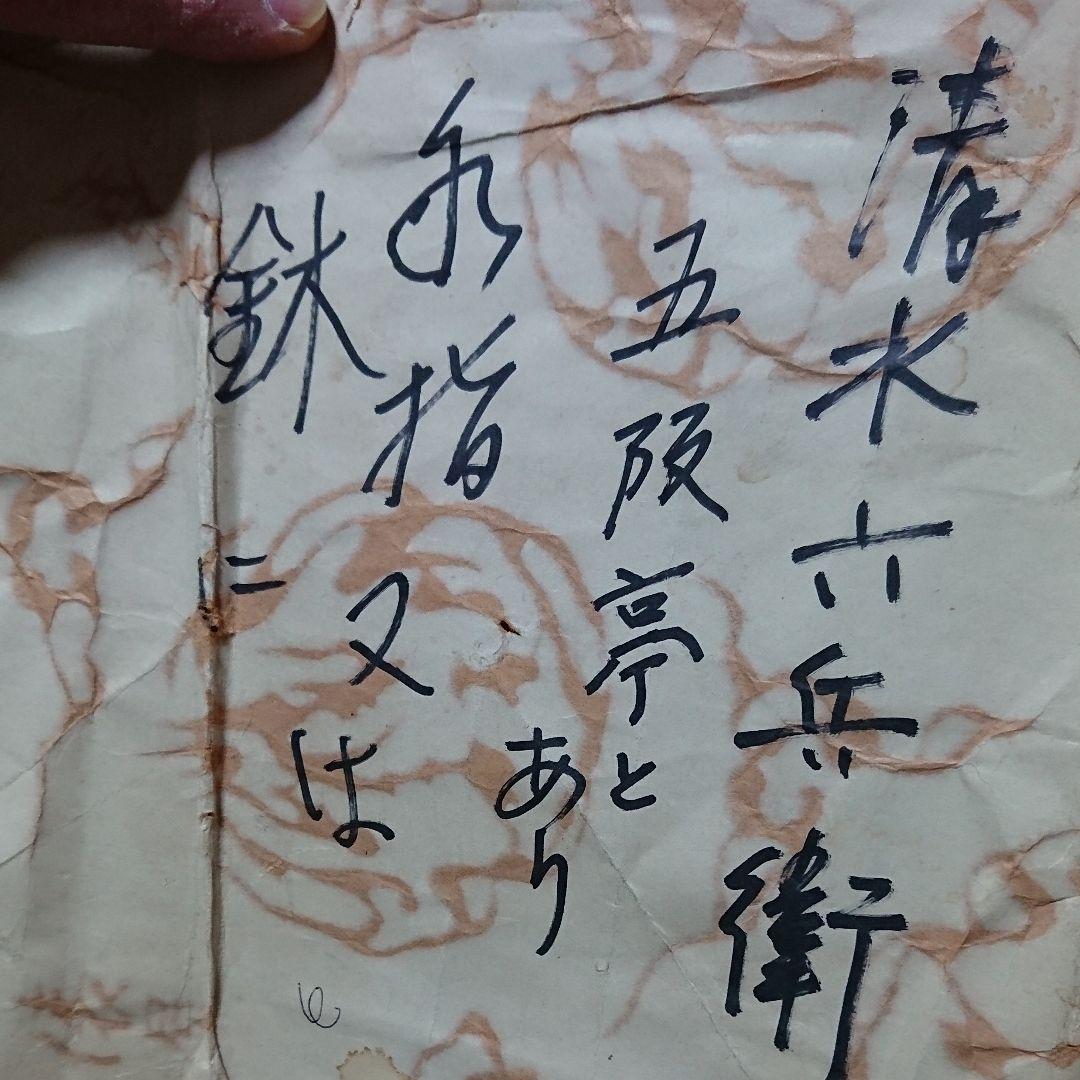 清水六兵衛
五阪亭と
あり
水指又は
鉢に